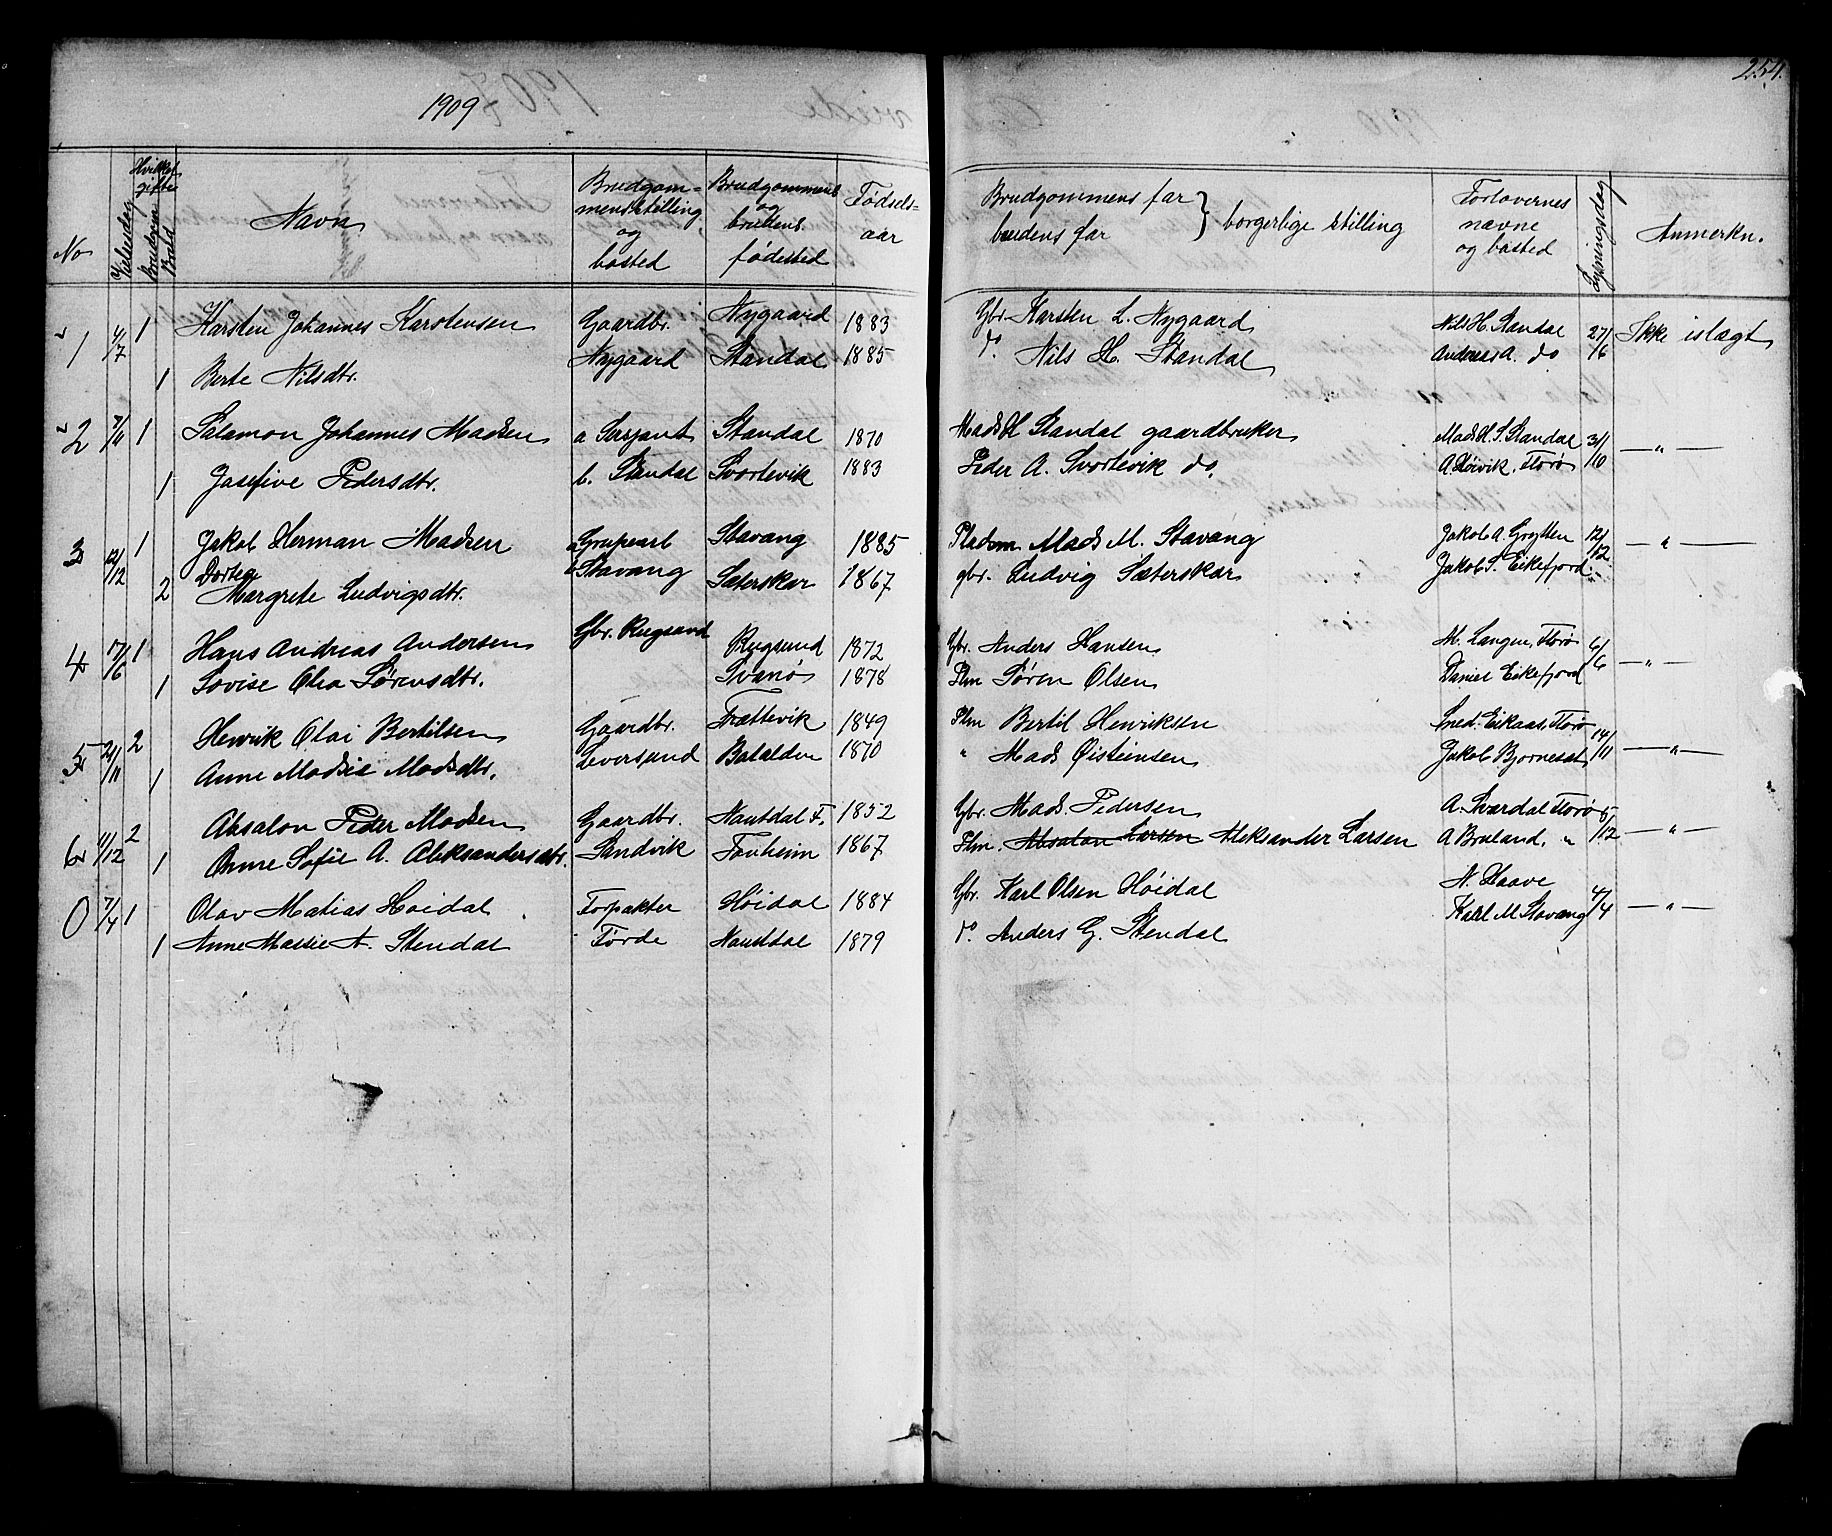 254.
1909
No
Vielsesdag
Hvilket gifte
Brudgom
Brud
Navn
Brudgom=
mens stilling
og
bosted
Brudgommens
og
brudens
fødested
Fødsels-
aar
Brudgommens far
brudens far } borgerlige stilling
Forlovernes
navne
og bosted
Lysningsdag
Anmerkn.
1 4/7 1 Karsten Johannes Karstensen Gaardbr. Nygaard 1883 Gbr. Karsten L. Nygaard Nils H. Standal 27/6 Ikke islagt
1 Berte Nilsdtr. Nygaard Standal 1885 do Nils H. Standal Andreas A. do
2 7/11 1 Salamon Johannes Madsen a Serjant Standal 1870 Mads H Standal gaardbruker Mads H. S. Standal 31/10 — " —
1 Josefine Pedersdtr. b. Standal Svortevik 1883 Peder A. Svortevik do. A. Høivik, Florø
3 12/12 1 Jakob Herman Madsen Stavang 1885 Pladsm Mads M. Stavang Jakob A. Grytten 12/12 — " —
Dortea
2 Margrete Ludvigsdtr. Stavang Sæterskar 1867 gbr. Ludvig Sæterskar Jakob S. Eikefjord
4 17/6 1 Hans Andreas Andersen Gbr. Rugsund Rugsund 1872 Gbr. Anders Hansen M. Langen, Florø 6/6 — " —
1 Lovise Olea Sørensdtr. Svanø 1878 Plm Søren Olsen Daniel Eikefjord
5 21/11 2 Henrik Olai Bertilsen Gaardbr. Trættevik 1849 Plm Bertil Henriksen Sned. Eikaas, Florø 14/11 — " —
1 Anne Madsie Madsdtr. Leversund Batalden 1870 " Mads Øisteinsen Jakob Bjørneset
6 4/12 2 Absalon Peder Madsen Gaardbr. Naustdal F. 1852 Gbr. Mads Pedersen A. Sværdal Florø 5/12 — " —
1 Anne Sofie A. Aleksandersdtr. Sandvik Tonheim 1867 Plm. Absalon Larsen Aleksander Larsen A Bruland, "
0 7/4 1 Olav Matias Høidal Forpakter Høidal 1884 Gbr. Karl Olsen Høidal N. Haave 4/4 — " —
1 Anne Massie A. Stendal Førde Naustdal 1879 do. Anders G. Stendal Karl M. Stavang